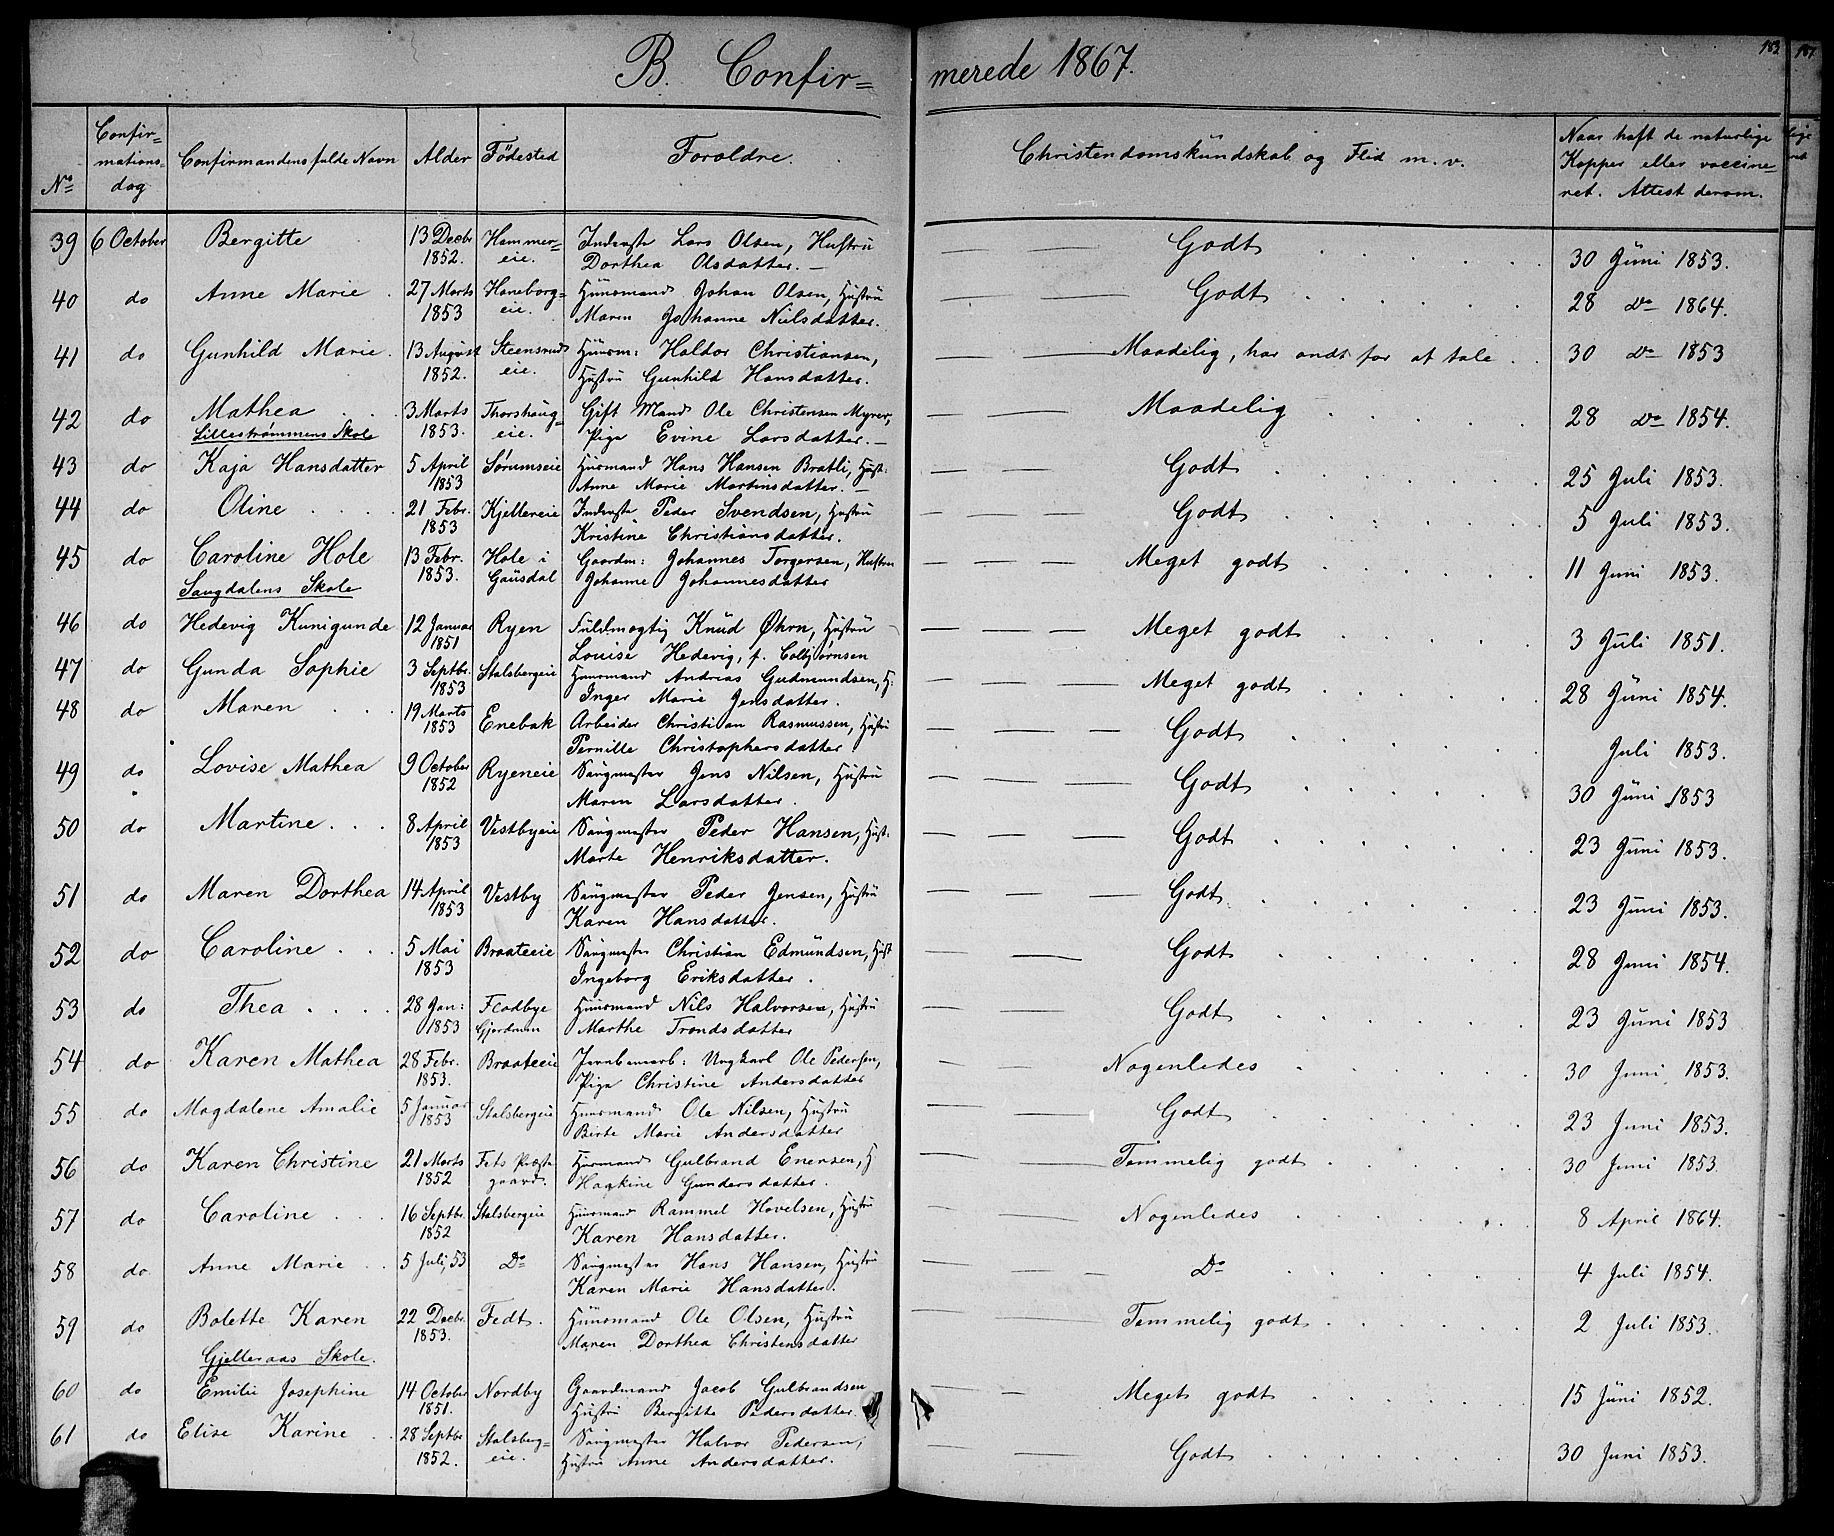 B. Confir= merede 1867.
183
187
No
Confir=
mations
dag
Confirmandens fulde Navn
Alder
Fødested
Forældre.
Christendomskundskab og Flid m. v.
Naar haft de naturlige
Kopper eller vaccine=
ret. Attest derom.
39 6 October Bergitte 13 Decbr 1852. Hammer= eie. Inderste Lars Olsen, Hustru
Dorthea Olsdatter. — Godt 30 Juni 1853.
40 do Anne Marie 27 Marts 1853 Haneborg= eie. Huusmand Johan Olsen, Hustru
Maren Johanne Nielsdatter. Godt 28 Do 1864.
41 do Gunhild Marie 13 August 1852. Steensrud eie. Huusm: Haldor Christiansen,
Hustru Gunhild Hansdatter. Maadelig, har ondt for at tale 30 Do 1853
42 do Mathea 3 Marts 1853. Thorshaug= eie. Gift Mand Ole Christensen Myrer,
Pige Evine Larsdatter. — Maadelig 28 Do 1854.
Lillestrømmens Skole
43 do Kaja Hansdatter 5 April 1853 Sørumseie Huusmand Hans Hansen Bratli, Hust:
Anne Marie Martinsdatter. — Godt 25 Juli 1853.
44 do Oline 21 Febr. 1853 Kjellereie Inderste Peder Svendsen, Hustru
Kristine Christiansdatter. Godt 5 Juli 1853.
45 do Caroline Hole 13 Febr. 1853. Hole i Gausdal Gaardm: Johannes Torgersen, Hustru
Johanne Johannesdatter Meget godt 11 Juni 1853.
Saugdalens Skole
46 do Hedevig Kunigunde 12 Januar 1851 Ryen Fuldmægtig Knud Øhrn, Hustru
Louise Hedevig, f. Colbjørnsen Meget godt 3 Juli 1851.
47 do Gunda Sophie 3 Septbr. 1853 Stalsbergeie Huusmand Andrias Gudmundsen, H:
Inger Marie Jensdatter. Meget godt 28 Juni 1854.
48 do Maren 19 Marts 1853 Enebak Arbeider Christian Rasmussen, Hustru
Pernille Christophersdatter Godt Juli 1853.
49 do Lovise Mathea 9 October 1852 Ryeneie Saugmester Jens Nilsen, Hustru
Maren Larsdatter. Godt 30 Juni 1853
50 do Martine 8 April 1853 Vestbyeie Saugmester Peder Hansen, Hust.
Marte Henriksdatter. Godt 23 Juni 1853.
51 do Maren Dorthea 14 April 1853 Vestby Saugmester Peder Jensen, Hustru
Karen Hansdatter. Godt 23 Juni 1853.
52 do Caroline 5 Mai 1853 Braateeie Saugmester Christian Edmundsen, Hust
Ingeborg Eriksdatter. Godt 28 Juni 1854.
53 do Thea 28 Jan: 1853 Fladbye Gjerdrum Huusmand Nils Halvorsen, Hustru
Marthe Trondsdatter Godt 23 Juni 1853
54 do Karen Mathea 28 Febr. 1853. Braateeie Jernbanearb: Ungkarl Ole Pedersen,
Pige Christine Andersdatter Nogenledes 30 Juni 1853.
55 do Magdalene Amalie 5 Januar 1853 Stalsbergeie Huusmand Ole Nilsen, Hustru
Birte Marie Andersdatter Godt 23 Juni 1853.
56 do Karen Christine 21 Marts 1852 Fets Præste gaard. Huusmand Gulbrand Enersen, H
Haakine Gundersdatter. Temmelig godt 30 Juni 1853.
57 do Caroline 16 Septbr. 1852 Stalsbergeie Huusmand Rammel Hovelsen, Hustru
Karen Hansdatter. Nogenledes 8 April 1864.
58 do Anne Marie 5 Juli, 53 Do Saugmester Hans Hansen, Hustru
Karen Marie Hansdatter. Do 4 Juli 1854.
59 do Bolette Karen 22 Decbr. 1853. Fedt. Huusmand Ole Olsen, Hustru
Maren Dorthea Christensdatter Temmelig godt 2 Juli 1853.
Gjelleraas Skole.
60 do Emilie Josephine 14 October 1851. Nordby Gaardmand Jacob Gulbrandsen
Hustru Bergitte Pedersdatter. Meget godt 15 Juni 1852.
61 do Elise Karine 28 Septbr 1852. Stalsberg= eie. Saugmester Halvor Pedersen,
Hustru Anne Andersdatter. Godt 30 Juni 1853.